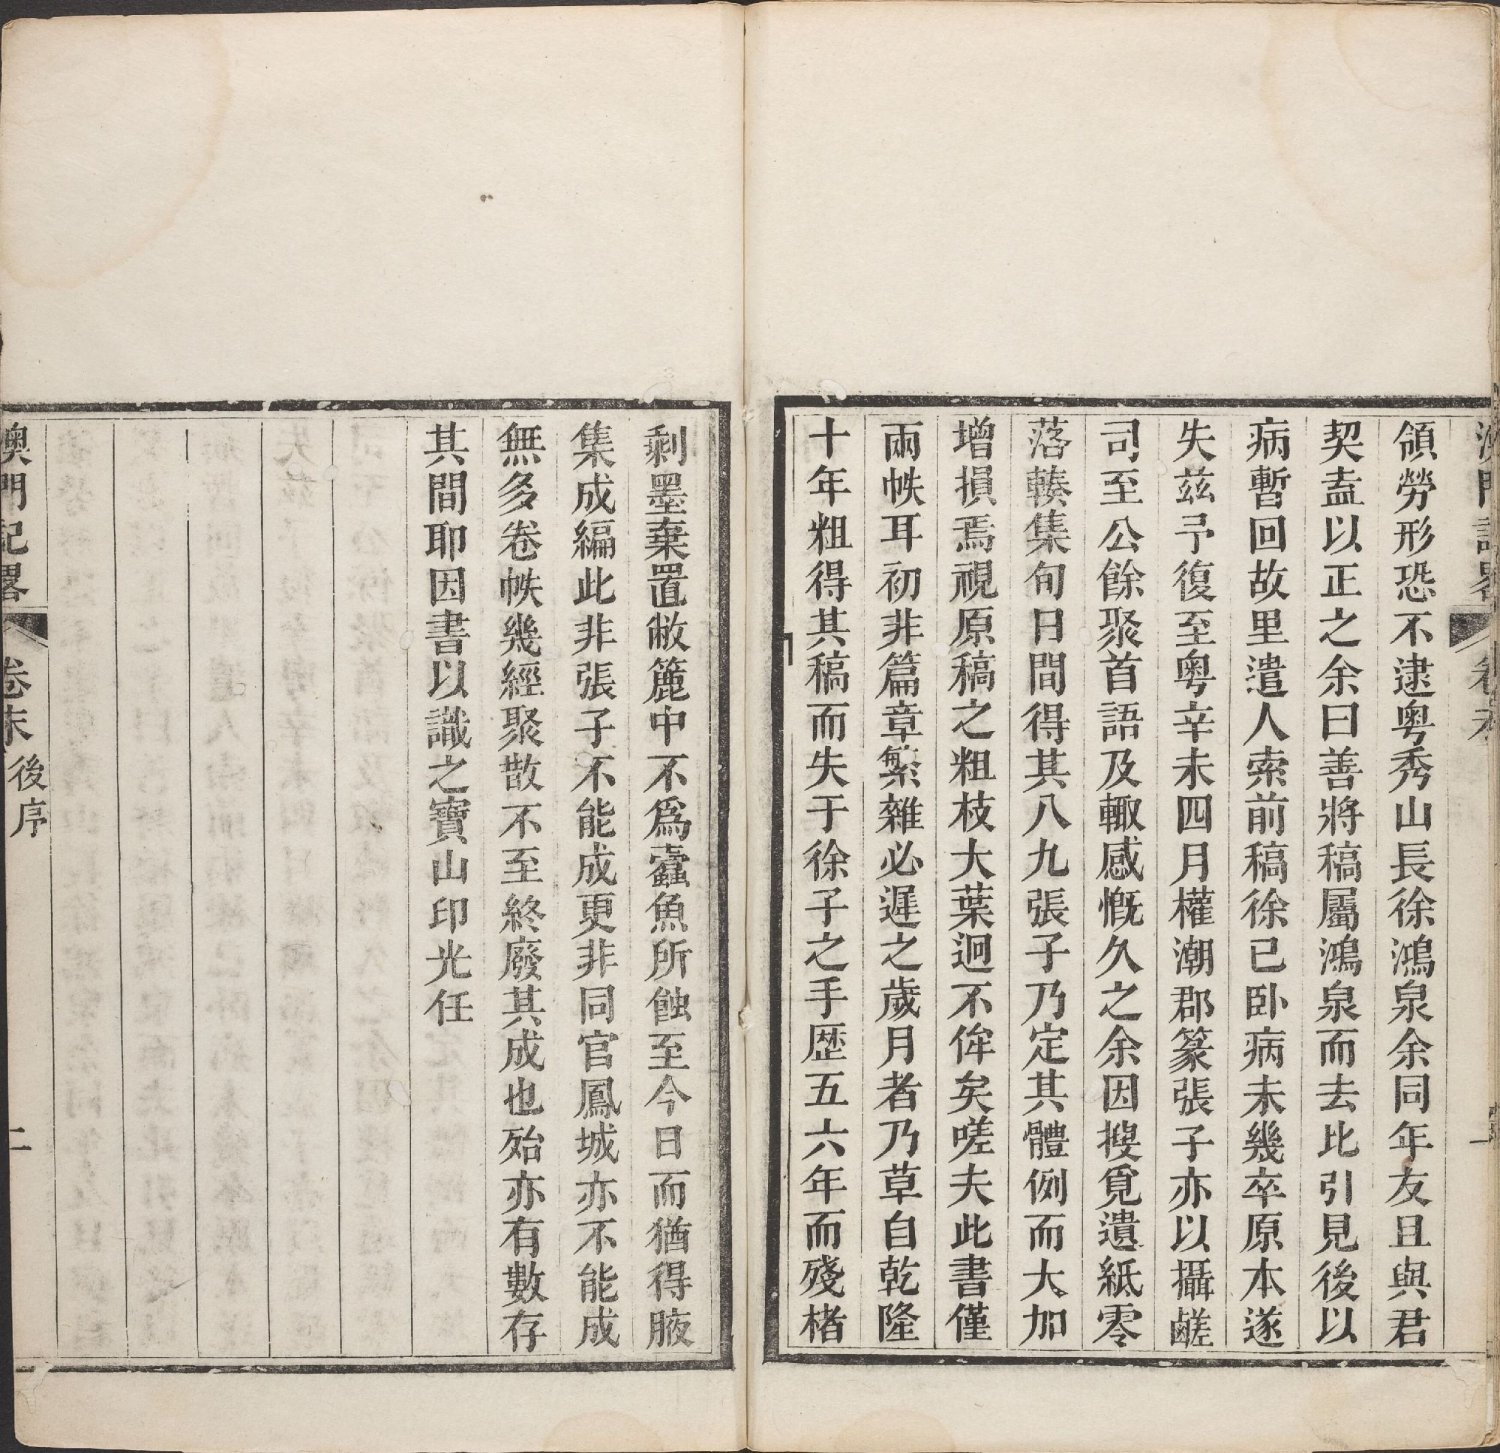 澳門記畧 卷末 一
領勞形恐不逮粤秀山長徐鴻泉余同年友且與君
契盍以正之余曰善將稿屬鴻泉而去比引見後以
病暫回故里遣人索前稿徐已卧病未幾卒原本遂
失兹予復至粤辛未四月權潮郡篆張子亦以攝鹺
司至公餘聚首語及輙感慨久之余因搜覓遺紙零
落輳集旬日間得其八九張子乃定其體例而大加
增損焉視原稿之粗枝大葉迥不侔矣嗟夫此書僅
兩帙耳初非篇章繁雜必遲之歲月者乃草自乾隆
十年粗得其稿而失于徐子之手歴五六年而殘楮
剩墨棄置敝簏中不爲蠧魚所蝕至今日而猶得腋
集成編此非張子不能成更非同官鳳城亦不能成
無多卷帙幾經聚散不至終廢其成也殆亦有數存
其間耶因書以識之寶山印光任
澳門記畧 卷末 後序 二